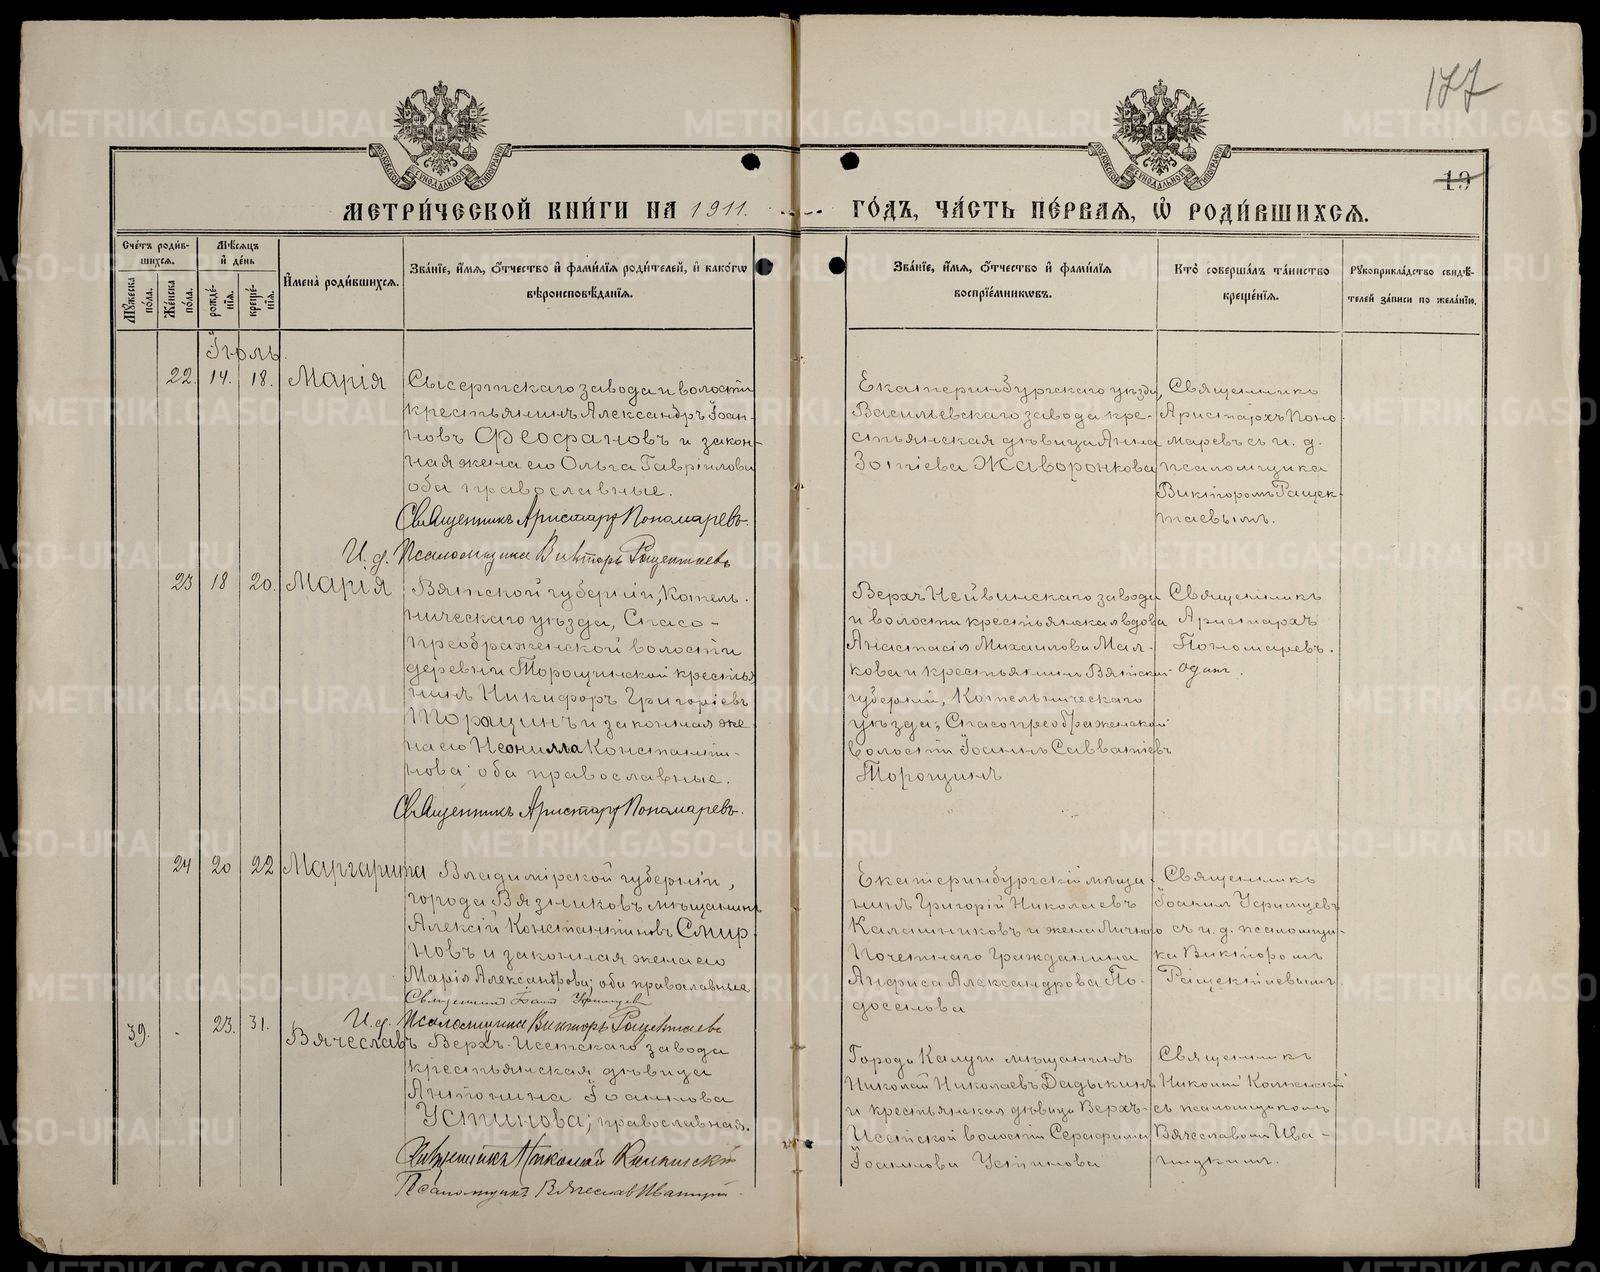 177
19
МОСКОВСКОЙ СѴНОДАЛЬНОЙ ТИПОГРАФІИ
МОСКОВСКОЙ СѴНОДАЛЬНОЙ ТИПОГРАФІИ
МЕТРИ́ЧЕСКОЙ КНИ́ГИ НА 1911. ГО́ДЪ, ЧА́СТЬ ПЕ́РВАЯ, Ѽ РОДИ́ВШИХСЯ.
Сче́тъ роди́вшихся.
Мѣ́сяцъ и҆ де́нь
Мꙋ́жеска по́ла.
Же́нска по́ла.
рожде́нїя.
креще́нїя.
И҆мена̀ роди́вшихся.
Зва́нїе, и҆́мя, ѻ҆́тчество и҆ фами́лїя роди́телей, и҆ како́гѡ вѣроисповѣ́данїя.
Зва́нїе, и҆́мя, ѻ҆́тчество и҆ фами́лїя воспрїе́мникѡвъ.
Кто̀ соверша́лъ та́инство креще́нїя.
Рꙋкоприкла́дство свидѣ́телей за́писи по жела́нїю.
Іюль.
22. 14. 18. Марія
Сысертскаго завода и волости
крестьянинъ Александръ Іоан-
новъ Феофановъ и закон-
ная жена его Ольга Гавріилова
оба православные.
Священникъ Аристархъ Пономаревъ.
И. д. Псаломщика Викторъ Ращектаевъ
Екатеринбургскаго уѣзда,
Васильевскаго завода кре-
стьянская дѣвица Анна
Зотіева Жаворонкова
Священникъ
Аристархъ Поно-
маревъ съ и. д.
псаломщика
Викторомъ Ращек-
таевымъ.
23 18 20. Марія
Вятской губерніи, Котель-
ническаго уѣзда, Спасо-
преображенской волости
деревни Торощинской крестья
нинъ Никифоръ Григоріевъ
Торощинъ и законная же-
на его Неонилла Константи-
нова оба православные.
Священникъ Аристархъ Пономаревъ.
Верхъ Нейвинскаго завода
и волости крестьянская вдова
Анастасія Михаилова Мал-
кова и крестьянинъ Вятской
губерніи, Котельническаго
уѣзда, Спасопреображенской
волости Іоаннъ Савватіевъ
Торощинъ
Священникъ
Аристархъ
Пономаревъ.
одинъ.
24 20 22 Маргарита
Владимірской губерніи,
города Вязниковъ мѣщанинъ
Алексій Константиновъ Смир-
новъ и законная жена его
Марія Александрова; оба православные
Священникъ Іоаннъ Уфимцевъ
И. д. Псаломщика Викторъ Ращектаевъ
Екатеринбургскій мѣща-
нинъ Григорій Николаевъ
Калашниковъ и жена Личнаго
Почетнаго Гражданина
Анфиса Александрова По-
доселова
Священникъ
Іоаннъ Уфимцевъ
съ и. д. псаломщи-
ка Викторомъ
Ращектаевымъ
39. - 23. 31. Вячеславъ
Верхъ-Исетскаго завода
крестьянская дѣвица
Антонина Іоаннова
Устинова; православная.
Священникъ Николай Колженскій
Псаломщикъ Вячеславъ Иваницкій
Города Калуги мѣщанинъ
Николай Николаевъ Дадыкинъ
и крестьянская дѣвица Верхъ-
Исетской волости Серафима
Іоаннова Устинова
Священникъ
съ псаломщикомъ
Вячеславомъ